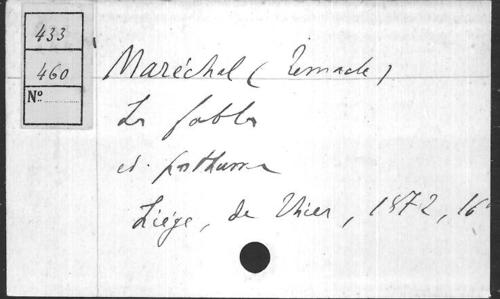 433
460
Nº
Maréchal (Remacle)
Les fables
éd. posthume
Liége, de Thier, 1872, 16º